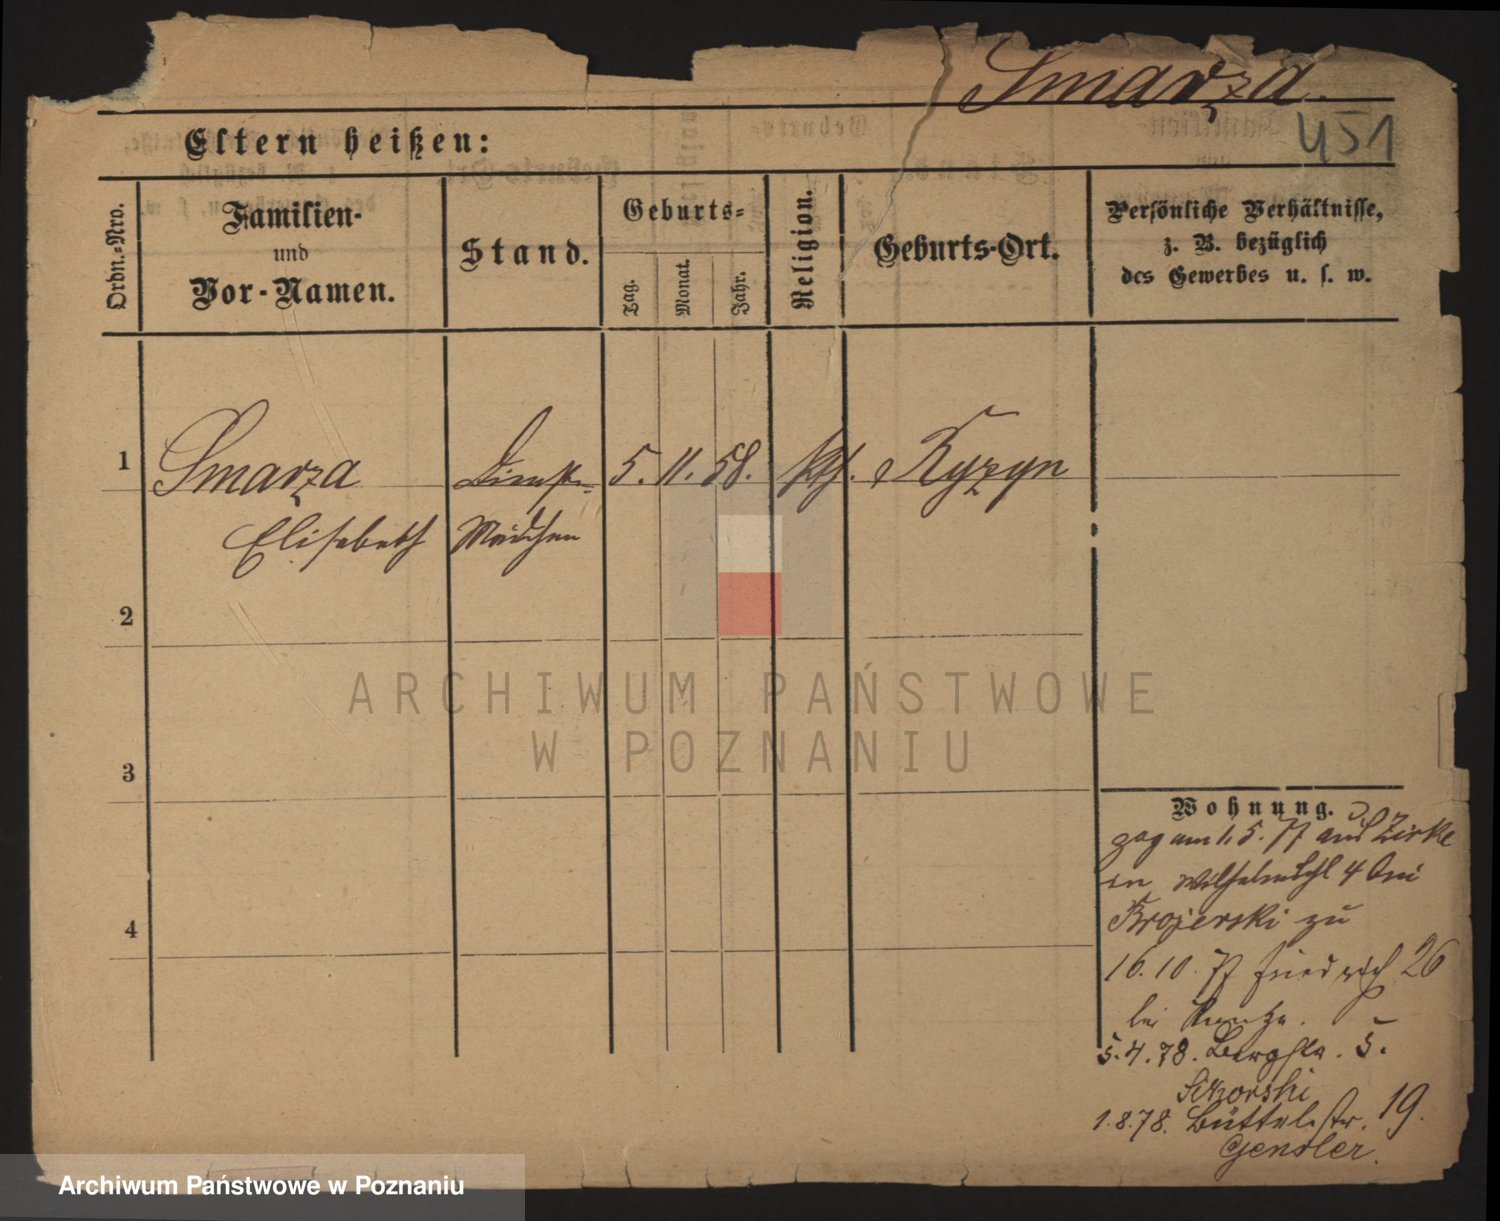 Smarza.
451
Eltern heißen:
Ordn.-Nro.
Familien-
und
Vor-Namen.
Stand.
Geburts-
Tag.
Monat.
Jahr.
Religion.
Geburts-Ort.
Persönliche Verhältnisse,
z. B. bezüglich
des Gewerbes u. s. w.
1 Smarza Dienst- 5. 11. 58. kth. Ryzyn
Elisabeth Mädchen
2
3
4
Wohnung.
zog am 1. 5. 77 aus Zirke
in 4
zu
16. 10. 77 Friedrich 26
bei
5. 4. 78. 5.
Sikorski
1. 8. 78. Büttelstr. 19.
Gensler.
ARCHIWUM PAŃSTWOWE
W POZNANIU
Archiwum Państwowe w Poznaniu